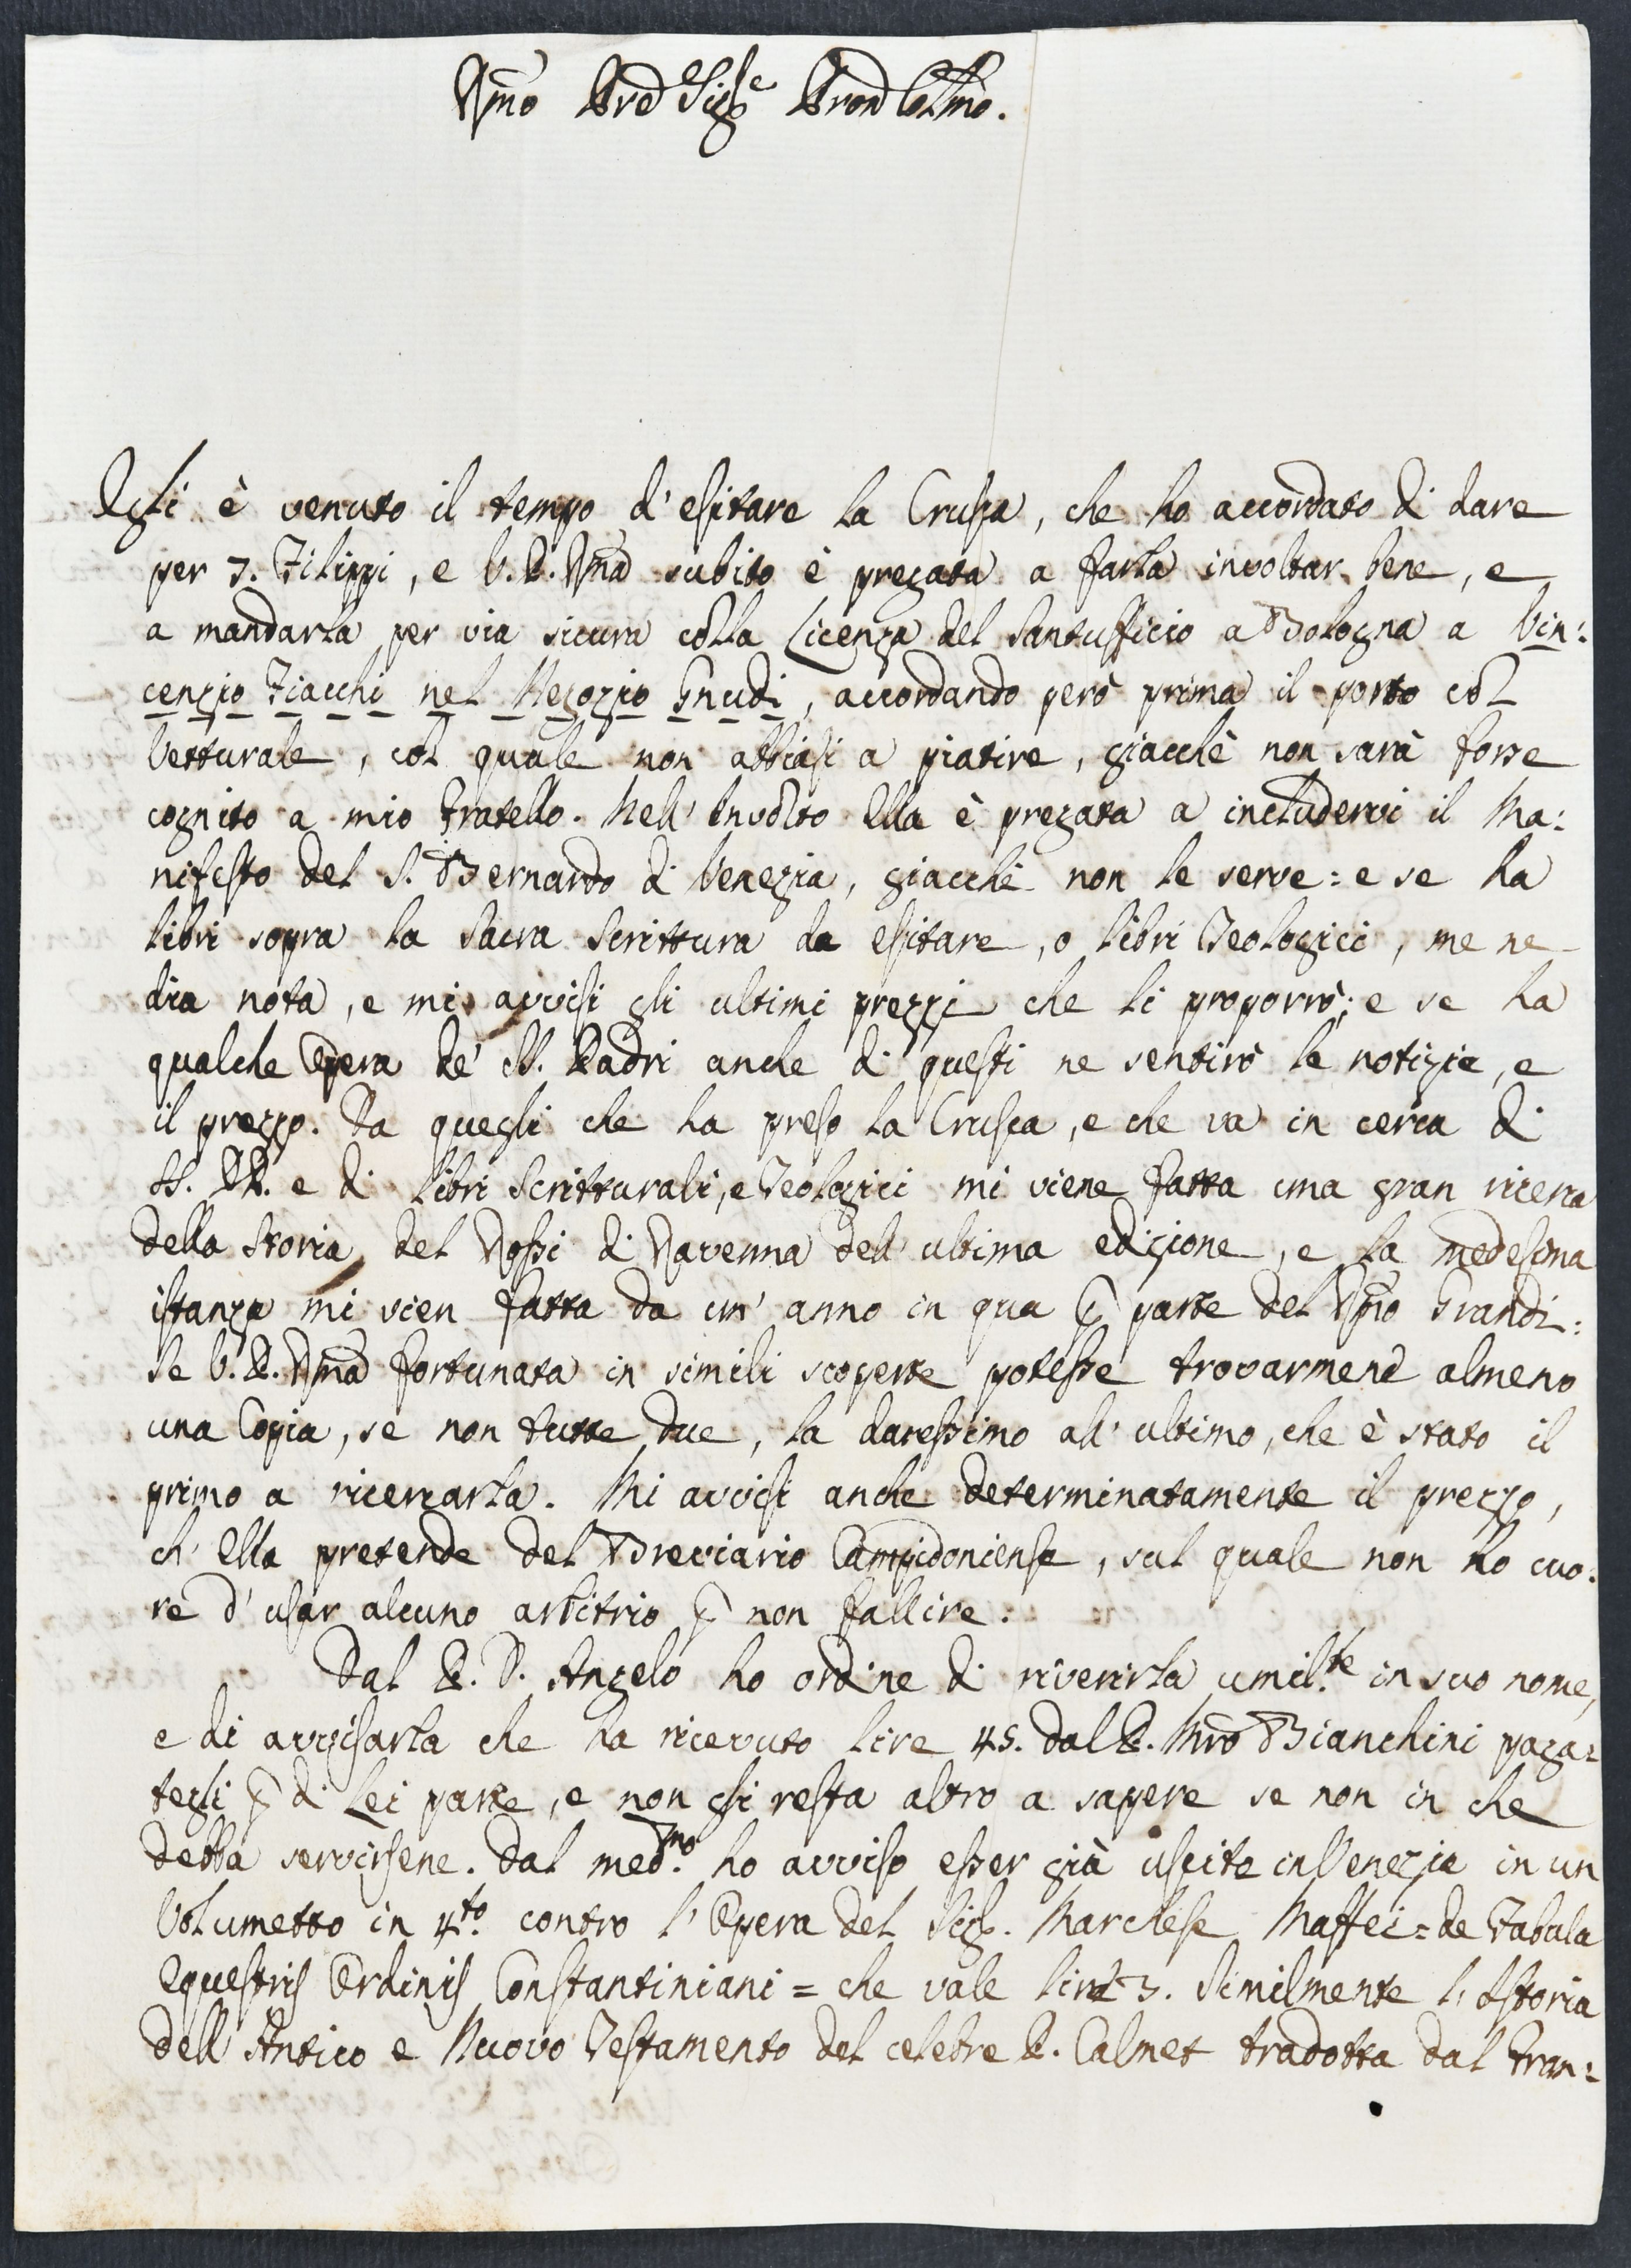 Rmo Pre Sigre Pron Colmo.
Egli è venuto il tempo d'esitare la Crusca, che ho accordato di dare
per 7. Filippi, e V. P. Rma subito è pregata a farla involtar bene, e
a mandarla per via sicura colla Licenza del Santufficio a Bologna a Vin:
cenzio Fiacchi nel Negozio Gnudi, accordando però prima il porto col
Vetturale, col quale non abbiasi a piatire, giacchè non sarà forse
cognito a mio Fratello. Nell'Involto Ella è pregata a includervi il Ma:
nifesto del S. Bernardo di Venezia, giacchè non le serve: e se ha
libri sopra la Sacra Scrittura da esitare, o libri Teologici, me ne
dia nota, e mi avvisi gli ultimi prezzi che li proporrò; e se ha
qualche Opera de' SS. Padri anche di questi ne sentirò le notizie, e
il prezzo. Da quegli che ha preso la Crusca, e che va in cerca di
SS. PP. e di libri Scritturali, e Teologici mi viene fatta una gran ricerca
della Storia del Rossi di Ravenna dell'ultima edizione, e la medesima
istanza mi vien fatta da un'anno in qua p parte del Rmo Grandi:
Se V. P. Rma fortunata in simili scoperte potesse trovarmene almeno
una Copia, se non tutte due, la daressimo all'ultimo, che è stato il
primo a ricercarla. Mi avvisi anche determinatamente il prezzo,
ch'Ella pretende del Breviario Campidoniense, sul quale non ho cuo:
re d'usar alcuno arbitrio p non fallire.
Dal P. D. Angelo ho ordine di riverirla umil.te in suo nome,
e di avvisarla che ha ricevuto lire 45. dal P. Mro Bianchini paga:
tegli p di Lei parte, e non gli resta altro a sapere se non in che
debba servirsene. Dal med.mo ho avviso esser già uscite in Venezia in un
Volumetto in 4.to contro l'Opera del Sigr. Marchese Maffei = de Fabula
Equestris Ordinis Constantiniani = che vale lire 3. Similmente l'Istoria
dell'Antico e Nuovo Testamento del celebre P. Calmet tradotta dal Fran: